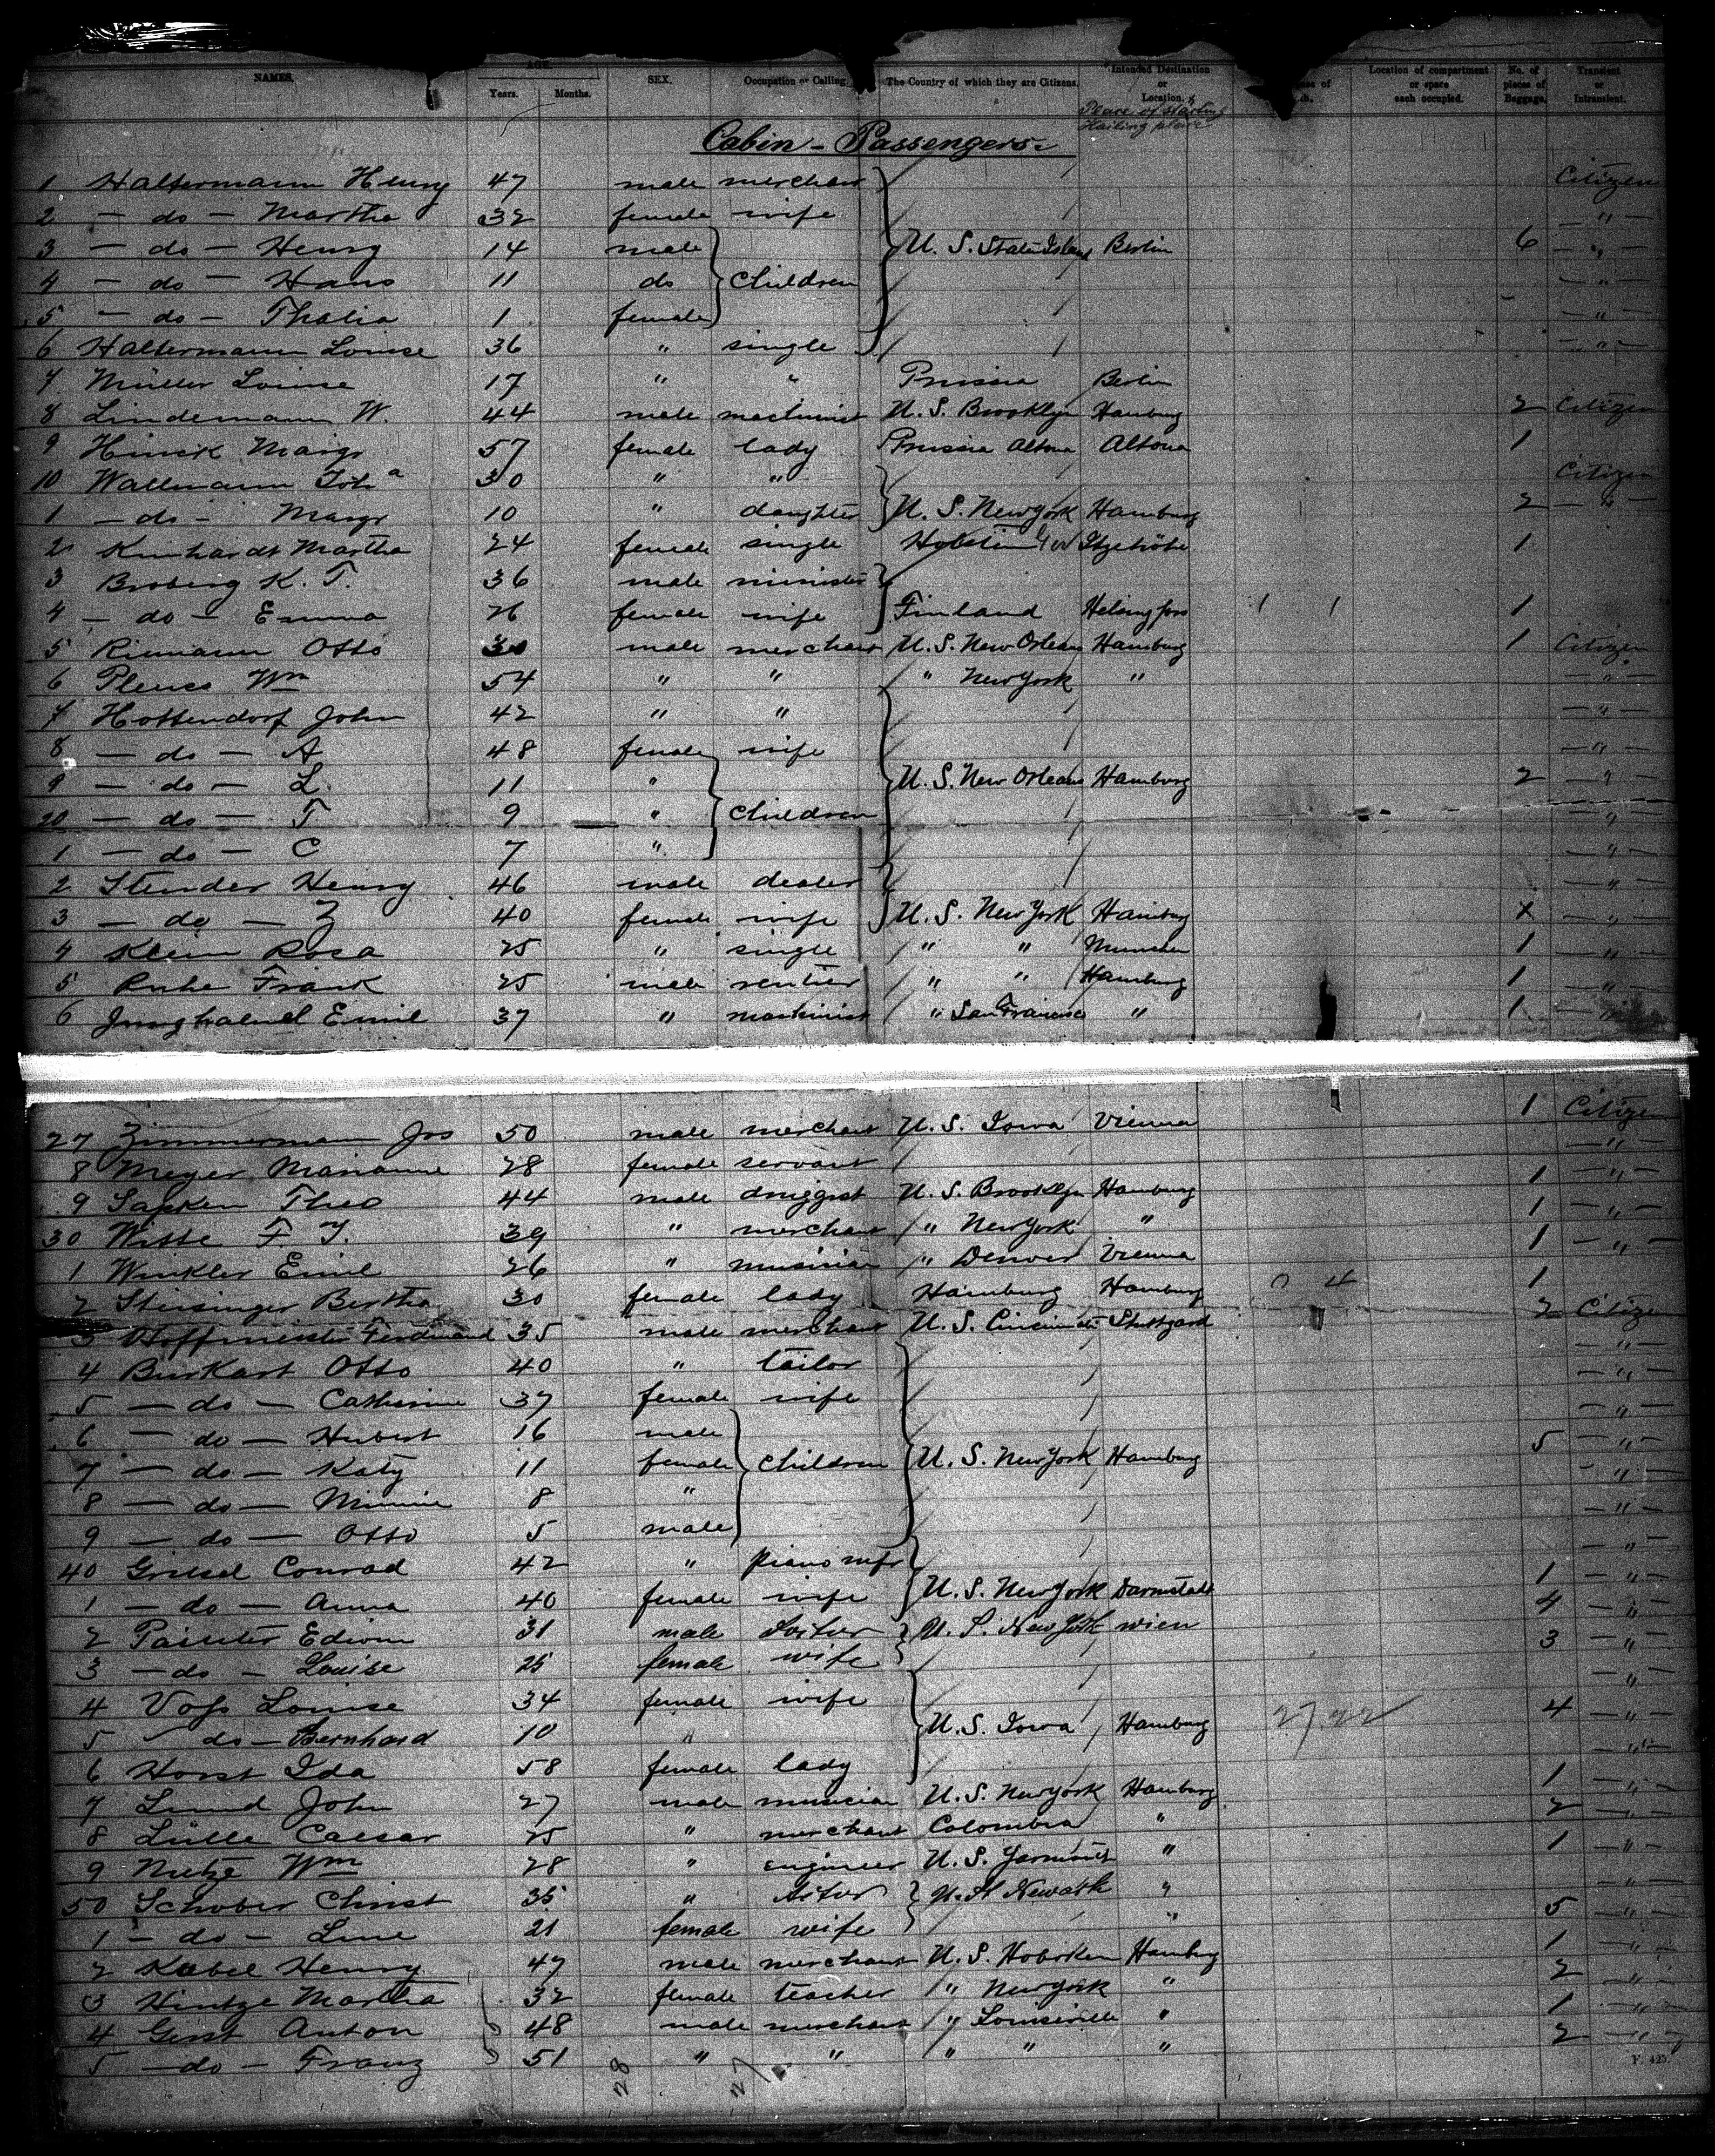 NAMES. AGE. Years. Months. SEX. Occupation or Calling. The Country of which they are Citizens. Intended Destination or Location. Location of compartment or space each occupied. No. of pieces of Baggage. Transient or Intransient.
Place of starting
Hailing place
Cabin - Passengers.
1 Haltermann Henry 47 male merchant Citizen
2 - do - Martha 32 female wife - " -
3 - do - Henry 14 male U. S. Staten Island Berlin 6 - " -
4 - do - Hans 11 do Children - " -
5 - do - Thalia 1 female - " -
6 Haltermann Louise 36 " single - " -
7 Müller Louise 17 " " Prussia Berlin
8 Lindemann W. 44 male machinist U. S. Brooklyn Hamburg 2 Citizen
9 Hinck Margr 57 female lady Prussia Altona Altona 1
10 Wallmann Joh a 30 " " Citizen
1 - do - Margr 10 " daughter U. S. New York Hamburg 2 - " -
2 Kunhardt Martha 24 female single Holstein Itzehöhe 1
3 Broberg K. T. 36 male minister
4 - do - Emma 26 female wife Finland Helsingfors 1
5 Riemann Otto 30 male merchant U. S. New Orleans Hamburg 1 Citizen
6 Wm 54 " " " New York " - " -
7 Hottendorf John 42 " " - " -
8 - do - A 48 female wife - " -
9 - do - L. 11 " U. S. New Orleans Hamburg 2 - " -
20 - do - T 9 " Children - " -
1 - do - C 7 " - " -
2 Stender Henry 46 male dealer - " -
3 - do - Z 40 female wife U. S. New York Hamburg X - " -
4 Klein Rosa 25 " single " " München 1 - " -
5 Ruhe Frank 25 male rentier " " Hamburg 1 - " -
6 Emil 37 " machinist " San Francisco " 1 - " -
27 Zimmermann Jos 50 male merchant U. S. Iowa Vienna 1 Citizen
8 Meyer Marianne 28 female servant - " -
9 Theo 44 male druggist U. S. Brooklyn Hamburg 1 - " -
30 Witte F J. 39 " merchant " New York " 1 - " -
1 Winkler Emil 26 " musician " Denver Vienna 1 - " -
2 Steisinger Bertha 30 female lady Hamburg Hamburg 1
3 Hoffmeister Ferdinand 35 male merchant U. S. Cincinnati Stuttgard 2 Citizen
4 Burkart Otto 40 " tailor - " -
5 - do - Catherine 37 female wife - " -
6 - do - Hubert 16 male - " -
7 - do - Katy 11 female Children U. S. New York Hamburg 5 - " -
8 - do - Minnie 8 " - " -
9 - do - Otto 5 male - " -
40 Conrad 42 " Piano mfr - " -
1 - do - Anna 40 female wife U. S. New York Darmstadt 1 - " -
2 Painter Edwin 31 male Doctor U. S. New York wien 4 - " -
3 - do - Louise 25 female wife 3 - " -
4 Voss Louise 34 female wife - " -
5 - do - Bernhard 10 " U. S. Iowa Hamburg 4 - " -
6 Horst Ida 58 female lady - " -
7 Lund John 27 male musician U. S. New York Hamburg 1 - " -
8 Lülle Caesar 25 " merchant Colombia " 2 - " -
9 Wm 28 " engineer U. S. " 1 - " -
50 Schober Christ 35 " Actor Newark " - " -
1 - do - Line 21 female wife " 5 - " -
2 Kabel Henry 47 male merchant U. S. Hoboken Hamburg 1 - " -
3 Hintze Martha 32 female teacher " New York " 2 - " -
4 Gerst Anton 48 male merchant " Louisville " 1 - " -
5 - do - Franz 51 " " " " " 2 - " -
28 27